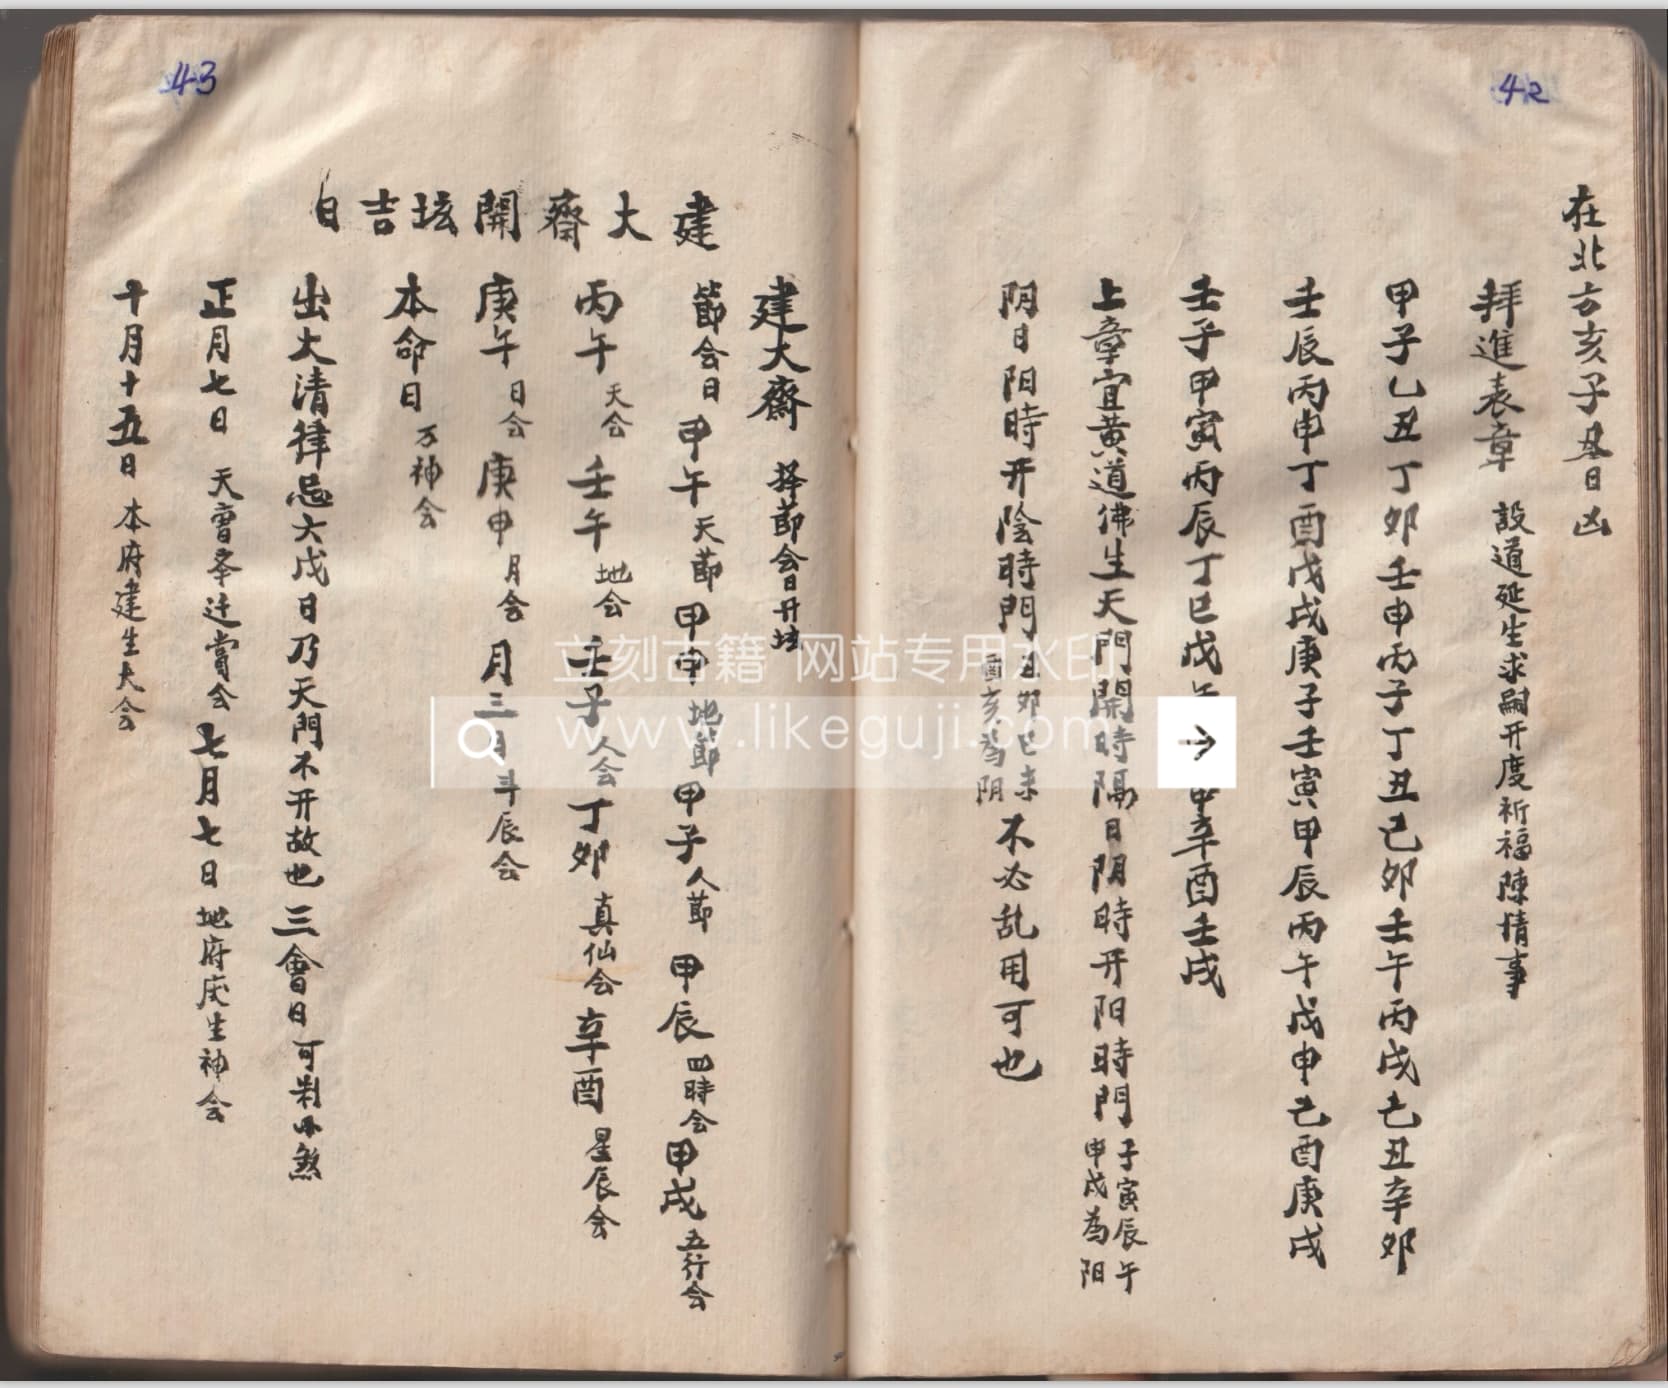 42
在北方亥子丑日凶
拜進表章 設道延生求嗣开度祈福陳情事
甲子乙丑丁卯壬申丙子丁丑己卯壬午丙戌己丑辛卯
壬辰丙申丁酉戊戌庚子壬寅甲辰丙午戊申己酉庚戌
壬子甲寅丙辰丁巳戊午 申辛酉壬戌
上章宜黄道佛生天門開時隔日阴時开阳時門 子寅辰午
申戌為阳
阴日阳時开陰時門 丑卯巳未
酉亥為阴 不必乱用可也
43
建大齋開坛吉日
建大齋 择節会日开坛
節会日甲午天節甲申地節甲子人節甲辰四時会甲戌五行会
丙午天会壬午地会壬子人会丁卯真仙会辛酉星辰会
庚午日会庚申月会月三日斗辰会
本命日万神会
出大清律忌大戊日乃天門不开故也三會日可 煞
正月七日 天曹 迁賞会七月七日地府庆生神会
十月十五日 本府建生大会
立刻古籍 网站专用水印
www.likeguji.com